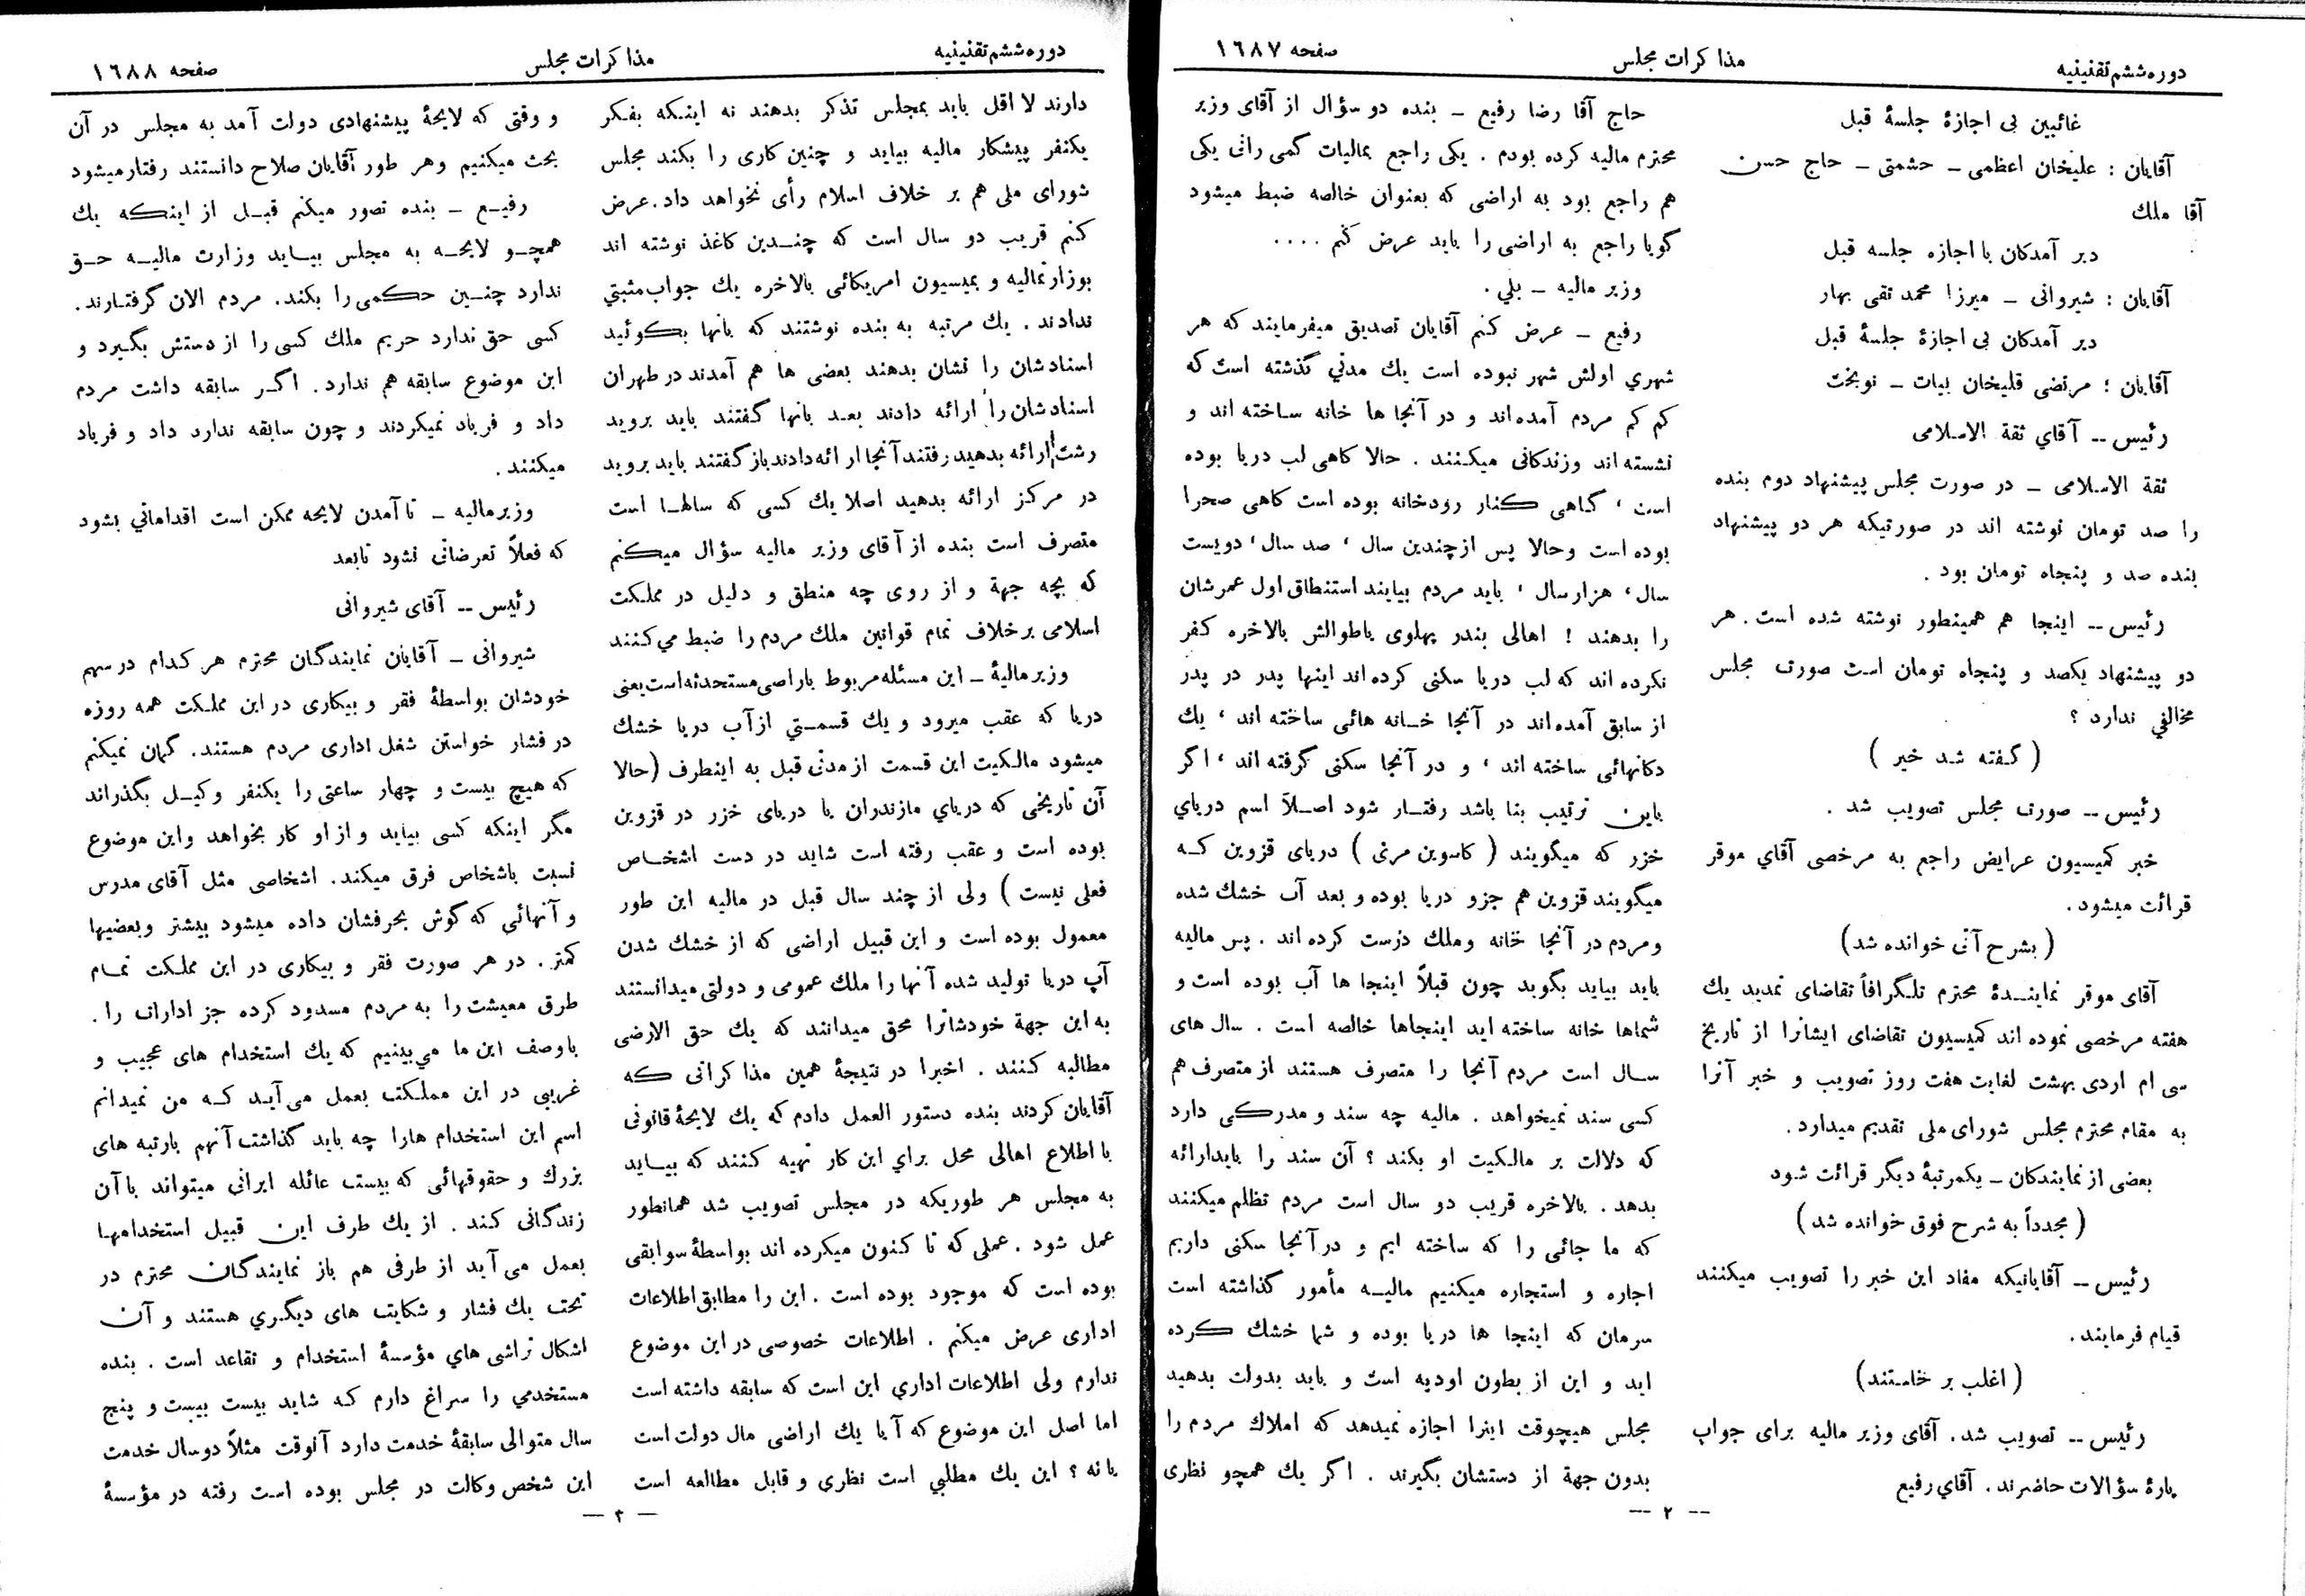 دوره ششم تقنینیه
مذاکرات مجلس
صفحه ۱۶۸۷
غائبین بی اجازۀ جلسۀ قبل
آقایان : علیخان اعظمی ــ حشمتی ــ حاج حسن
آقا ملك
دیر آمدکان با اجازه جلسه قبل
آقایان : شیروانی ــ میرزا محمد تقی بهار
دیر آمدکان بی اجازۀ جلسۀ قبل
آقایان : مرتضی قلیخان بیات ــ نوبخت
رئیس ــ آقاي ثقة الاسلامی
ثقة الاسلامی ــ در صورت مجلس پیشنهاد دوم بنده
را صد تومان نوشته اند در صورتیکه هر دو پیشنهاد
بنده صد و پنجاه تومان بود .
رئیس ــ اینجا هم همینطور نوشته شده است . هر
دو پیشنهاد یکصد و پنجاه تومان است صورت مجلس
مخالفي ندارد ؟
( گفته شد خیر )
رئیس ــ صورت مجلس تصویب شد .
خبر کمیسیون عرایض راجع به مرخصی آقاي موقر
قرائت میشود .
( بشرح آتی خوانده شد )
آقای موقر نماینـدۀ محترم تلگرافاً تقاضای تمدید یك
هفته مرخصی نموده اند کمیسیون تقاضای ایشانرا از تاریخ
سی ام اردی بهشت لغایت هفت روز تصویب و خبر آنرا
به مقام محترم مجلس شورای ملی تقدیم میدارد .
بعضی از نمایندکان ــ یکمرتبۀ دیگر قرائت شود
( مجدداً به شرح فوق خوانده شد )
رئیس ــ آقایانیکه مفاد این خبر را تصویب میکنند
قیام فرمایند .
( اغلب بر خاستند )
رئیس ــ تصویب شد . آقای وزیر مالیه برای جواب
پارۀ سؤالات حاضرند . آقاي رفیع
حاج آقا رضا رفیع ــ بنده دو سؤال از آقای وزیر
محترم مالیه کرده بودم . یکی راجع بمالیات کمی رانی یکی
هم راجع بود به اراضی که بعنوان خالصه ضبط میشود
گویا راجع به اراضی را باید عرض کنم ....
وزیر مالیه ــ بلي .
رفیع ــ عرض کنم آقایان تصدیق میفرمایند که هر
شهري اولش شهر نبوده است یك مدتي گذشته است که
کم کم مردم آمده اند و در آنجا ها خانه ساخته اند و
نشسته اند وزندکانی میکنند . حالا کاهی لب دریا بوده
است ، گاهی کنار رودخانه بوده است کاهی صحرا
بوده است وحالا پس از چندین سال ، صد سال ، دویست
سال ، هزار سال ، باید مردم بیایند استنطاق اول عمرشان
را بدهند ! اهالی بندر پهلوی یا طوالش بالاخره کفر
نکرده اند که لب دریا سکنی کرده اند اینها پدر در پدر
از سابق آمده اند در آنجا خـانه هائی ساخته اند ، یك
دکانهائی ساخته اند ، و در آنجا سکنی گرفته اند ، اگر
باین ترتیب بنا باشد رفتـار شود اصـلاً اسم دریاي
خزر که میگویند ( کاسوین مرنی ) دریای قزوین کـه
میگویند قزوین هم جزو دریا بوده و بعد آب خشك شده
ومردم در آنجا خانه وملك درست کرده اند . پس مالیه
باید بیاید بگوید چون قبلاً اینجا ها آب بوده است و
شماها خانه ساخته اید اینجاها خالصه است . سال های
سـال است مردم آنجا را متصرف هستند از متصرف هم
کسی سند نمیخواهد . مالیه چه سند و مدرکی دارد
که دلالت بر مالکیت او بکند ؟ آن سند را باید ارائه
بدهد . بالاخره قریب دو سال است مردم تظلم میکنند
که ما جائی را که ساخته ایم و در آنجا سکنی داریم
اجاره و استجاره میکنیم مالیـه مأمور گذاشته است
سرمان که اینجا ها دریا بوده و شما خشك کرده
اید و این از بطون اودیه است و باید بدولت بدهید
مجلس هیچوقت اینرا اجازه نمیدهد که املاك مردم را
بدون جهة از دستشان بگیرند . اگر یك همچو نظری
ــ ۲ ــ
دوره ششم تقنینیه
مذاکرات مجلس
صفحه ۱۶۸۸
دارند لا اقل باید بمجلس تذکر بدهند نه اینکه بفکر
یکنفر پیشکار مالیه بیاید و چنین کاری را بکند مجلس
شورای ملی هم بر خلاف اسلام رأی نخواهد داد . عرض
کنم قریب دو سال است که چنـدین کاغذ نوشته اند
بوزارتمالیه و بمیسیون امریکائی بالاخره یك جواب مثبتي
ندادند . یك مرتبه به بنده نوشتند که بانها بگوئید
اسنادشان را نشان بدهند بعضی ها هم آمدند در طهران
اسنادشان را ارائه دادند بعـد بانها گفتند باید بروید
رشت ارائه بدهید رفتند آنجا ارائه دادند باز گفتند باید بروید
در مرکز ارائه بدهید اصلا یك کسی که سالهـا است
متصرف است بنده از آقای وزیر مالیه سؤال میکنم
که بچه جهة و از روی چه منطق و دلیل در مملکت
اسلامی برخلاف تمام قوانین ملك مردم را ضبط مي کنند
وزیر مالیۀ ــ این مسئله مربوط باراصی مستحدثه است یعنی
دریا که عقب میرود و یك قسمـتي از آب دریا خشك
میشود مالکیت این قسمت از مدتی قبل به اینطرف ( حالا
آن تاریخی که دریاي مازندران یا دریای خزر در قزوین
بوده است و عقب رفته است شاید در دست اشخـاص
فعلی نیست ) ولی از چند سال قبل در مالیه این طور
معمول بوده است و این قبیل اراضی که از خشك شدن
آب دریا تولید شده آنها را ملك عمومی و دولتی میدانستند
به این جهة خودشانرا محق میدانند که یك حق الارضی
مطالبه کنند . اخیرا در نتیجۀ همین مذاکراتی که
آقایان کردند بنده دستور العمل دادم که یك لایحۀ قانونی
با اطلاع اهالی محل براي این کار تهیه کنند که بیـاید
به مجلس هر طوریکه در مجلس تصویب شد همانطور
عمل شود . عملی که تا کنون میکرده اند بواسطۀ سوابقی
بوده است که موجود بوده است . این را مطابق اطلاعات
اداری عرض میکنم . اطلاعات خصوصی در این موضوع
ندارم ولی اطلاعات اداري این است که سابقه داشته است
اما اصل این موضوع که آیا یك اراضی مال دولت است
یا نه ؟ این یك مطلبي است نظری و قابل مطالعه است
و وقتی که لایحۀ پیشنهادی دولت آمد به مجلس در آن
بحث میکنیم وهر طور آقایان صلاح دانستند رفتار میشود
رفیـع ــ بنده تصور میکنم قبـل از اینکه یك
همچـو لایحـه به مجلس بیـاید وزارت مالیـه حـق
ندارد چنـین حکمی را بکند . مردم الان گرفتـارند .
کسی حق ندارد حریم ملك کسی را از دستش بگـیرد و
این موضوع سابقه هم ندارد . اگـر سابقه داشت مردم
داد و فریاد نمیکردند و چون سابقه ندارد داد و فریاد
میکنند .
وزیر مالیه ــ تا آمدن لایحه ممکن است اقداماتي بشود
که فعلاً تعرضاتی نشود تابعد
رئیس ــ آقای شیروانی
شیروانی ــ آقایان نمایندگان محترم هر کدام در سهم
خودشان بواسطۀ فقر و بیکاری در این مملکت همه روزه
در فشار خواستن شغل اداری مردم هستند . گمان نمیکنم
که هیچ بیست و چهار ساعتی را یکنفر وکیـل بگذراند
مگر اینکه کسی بیاید و از او کار بخواهد واین موضوع
نسبت باشخاص فرق میکند . اشخاصی مثل آقای مدرس
و آنهائی که گوش بحرفشان داده میشود بیشتر وبعضیها
کمتر . در هر صورت فقر و بیکاری در این مملکت تمـام
طرق معیشت را به مردم مسدود کرده جز ادارات را .
با وصف این ما مي بینیم که یك استخدام های عجیب و
غریبی در این مملکت بعمل می آیـد کـه من نمیدانم
اسم این استخدام هارا چه باید گذاشت آنهم بارتبه های
بزرك و حقوقهائی که بیست عائله ایرانی میتواند با آن
زندگانی کند . از یك طرف این قبیل استخدامهـا
بعمل می آید از طرفی هم باز نمایندگان محترم در
تحت یك فشار و شکایت های دیگـري هستند و آن
اشکال تراشی هاي مؤسسۀ استخدام و تقاعد است . بنده
مستخدمي را سراغ دارم که شاید بیست بیست و پنج
سال متوالی سابقۀ خدمت دارد آنوقت مثلاً دو سال خدمت
این شخص وکالت در مجلس بوده است رفته در مؤسسۀ